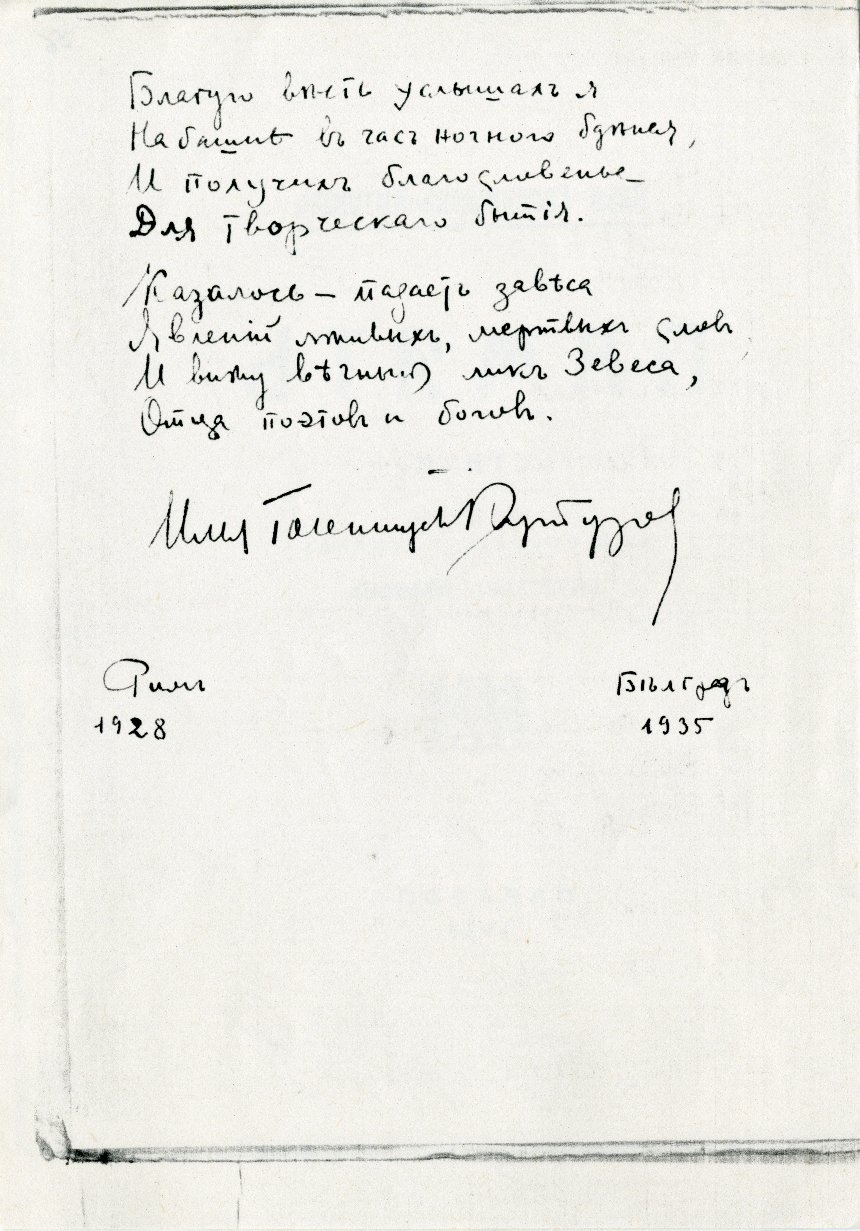 Благую вѣсть услышалъ я
На башнѣ въ часъ ночного бдѣнья,
И получилъ благословенье
Для творческаго бытія.
Казалось – падаетъ завѣса
Явленій лживыхъ, мертвыхъ словъ
И вижу вѣчный ликъ Зевеса,
Отца поэтовъ и боговъ.
Илья Голенищевъ Кутузов
Римъ
Бѣлградъ
1928
1935